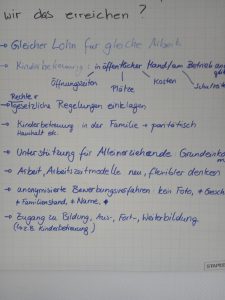 wir das erreichen?
→ Gleicher Lohn für gleiche Arbeit
→ Kinderbetreuung: in öffentlicher Hand/am Betrieb
Öffnungszeiten Plätze Kosten
Rechte +
→ gesetzliche Regelungen einklagen
→ Kinderbetreuung in der Familie → paritätisch
Haushalt etc.
→ Unterstützung für Alleinerziehende: Grundeink
→ Arbeit, Arbeitszeitmodelle neu, flexibler denken
→ anonymisierte Bewerbungsverfahren kein Foto, + Gesch
+ Familienstand, + Name,
→ Zugang zu Bildung, Aus-, Fort-, Weiterbildung
(→ z.B. Kinderbetreuung)